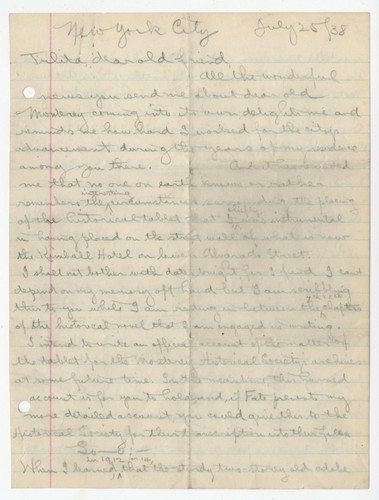 New York City July 25/38
Tulita, dear old friend,
All the wonderful
news you send me about dear old
Monterey coming into its own delights me and
reminds me how hard I worked for the city's
advancement during the years of my residence
among you there. And it has reminded
me that no one on earth knows or rather
remembers the interesting circumstances surrounding the placing
of the historical tablet that I was instrumental
in having placed on the street wall of what is now
the Kimball Hotel on lower Alvarado Street.
I shall not bother with date for I find I can't
depend on my memory off hand but I am scribbling
this to you while I am resting in between the chapters
of the historical novel that I am engaged in writing.
I intend to write an official account of the matter of
the tablet for the Monterey Historical Society's archives
at some future time. In the meantime this hurried
account is for you to hold and, if Fate prevents my
more detailed account, you could give this to the
Historical Society for their transcription into their files.
So—
When I learned that the sturdy two-storey old adobe